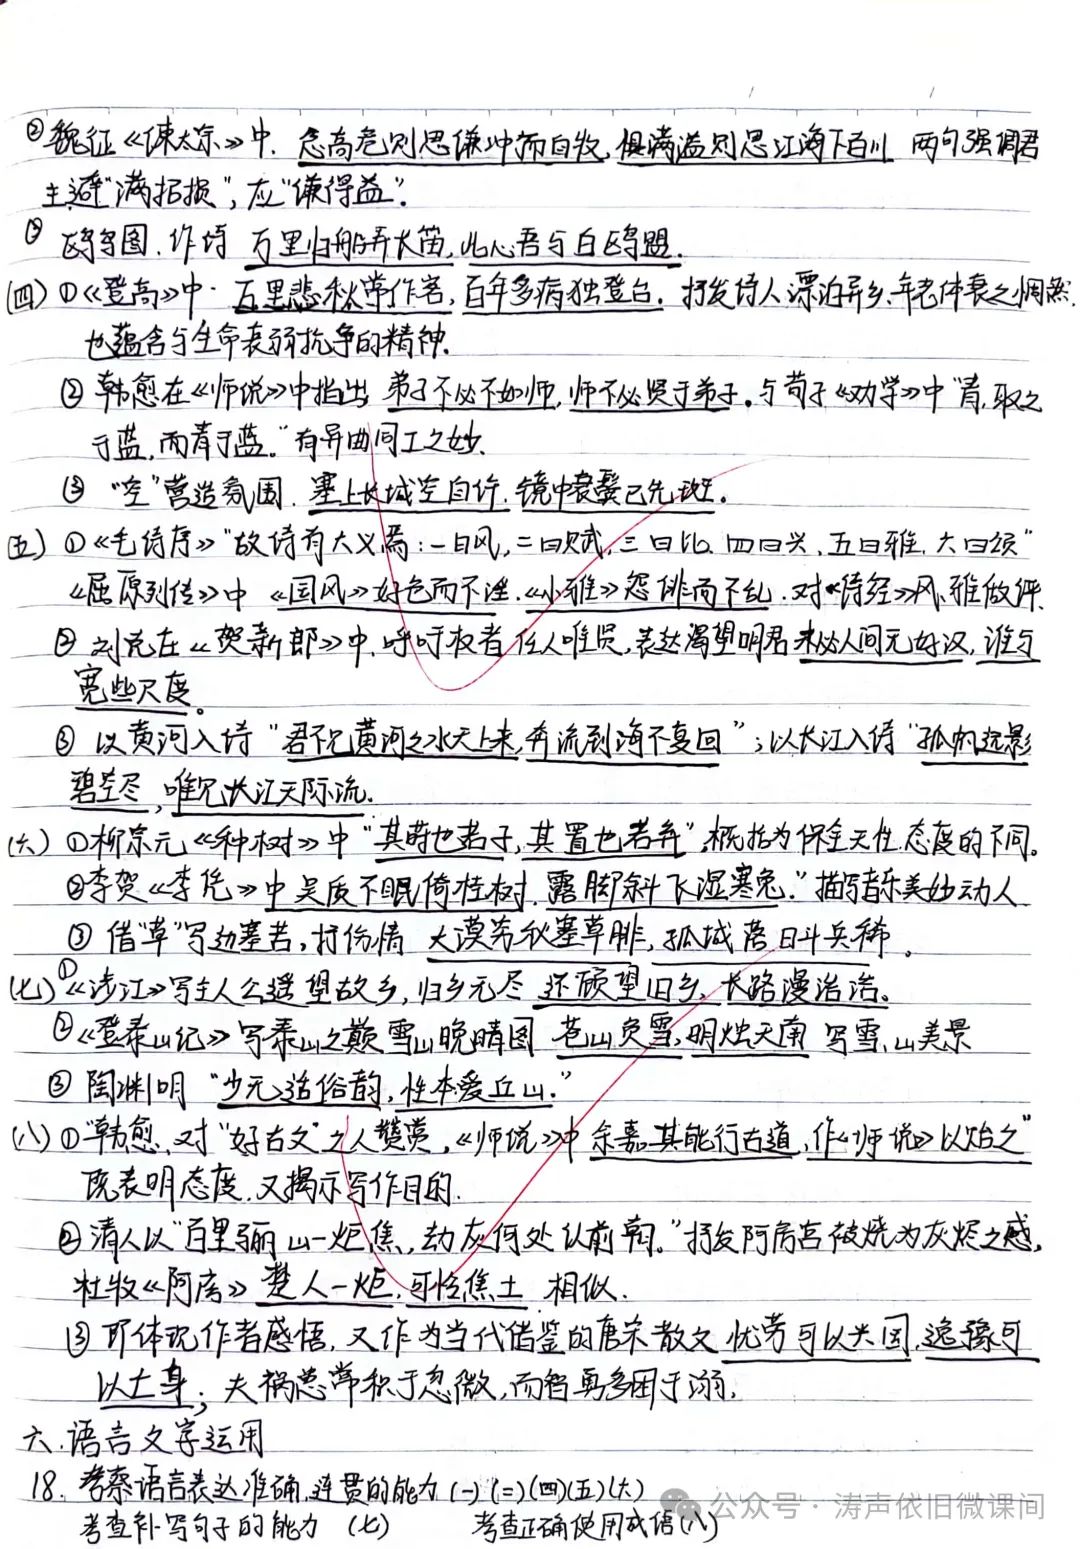 ②魏征《谏太宗》中，念高危则思谦冲而自牧，惧满溢则思江海下百川 两句强调君
主避"满招损"，应"谦得益"。
③ 鸥鸟图，作诗 万里归船弄长笛，此心吾与白鸥盟。
(四)①《登高》中· 万里悲秋常作客，百年多病独登台。抒发诗人漂泊异乡、年老体衰之惆怅，
也蕴含与生命衰弱抗争的精神。
② 韩愈在《师说》中指出 弟子不必不如师，师不必贤于弟子。与荀子《劝学》中"青，取之
于蓝，而青于蓝。"有异曲同工之妙。
③ "空"营造氛围，塞上长城空自许，镜中衰鬓已先斑。
(五) ①《毛诗序》"故诗有六义焉：一曰风，二曰赋，三曰比，四曰兴，五曰雅，六曰颂"
《屈原列传》中《国风》好色而不淫，《小雅》怨诽而不乱，对《诗经》风、雅做评
② 刘克在《贺新郎》中，呼吁权者任人唯贤，表达渴望明君未必人间无好汉，谁与
宽些尺度。
③ 以黄河入诗"君不见黄河之水天上来，奔流到海不复回"；以长江入诗"孤帆远影
碧空尽，唯见长江天际流。
(六) ①柳宗元《种树》中"其莳也若子，其置也若弃"，概括为保全天性，态度的不同。
②李贺《李凭》中吴质不眠倚桂树，露脚斜飞湿寒兔."描写音乐美妙动人
③ 借"草"写边塞苦，抒伤情 大漠穷秋塞草腓，孤城落日斗兵稀。
(七)①《涉江》写主人公遥望故乡，归乡无尽 还顾望旧乡，长路漫浩浩。
②《登泰山记》写泰山之巅雪山晚晴图 苍山负雪，明烛天南 写雪，山美景
③ 陶渊明 "少无适俗韵，性本爱丘山."
(八) ①"韩愈，对"好古文"之人赞赏，《师说》中余嘉其能行古道，作《师说》以贻之"
既表明态度，又揭示写作目的.
② 清人以"百里骊山一炬焦，劫灰何处认前朝。"抒发阿房宫被烧为灰烬之感，
杜牧《阿房》 楚人一炬，可怜焦土 相似.
③ 即体现作者感悟，又作为当代借鉴的唐宋散文 忧劳可以兴国，逸豫可
以亡身；夫祸患常积于忽微，而智勇多困于溺.
六.语言文字运用
18. 考察语言表达准确，连贯的能力 (一)(二)(四)(五)(六)
考查补写句子的能力 (七) 考查正确使用成语(八)
公众号·涛声依旧微课间